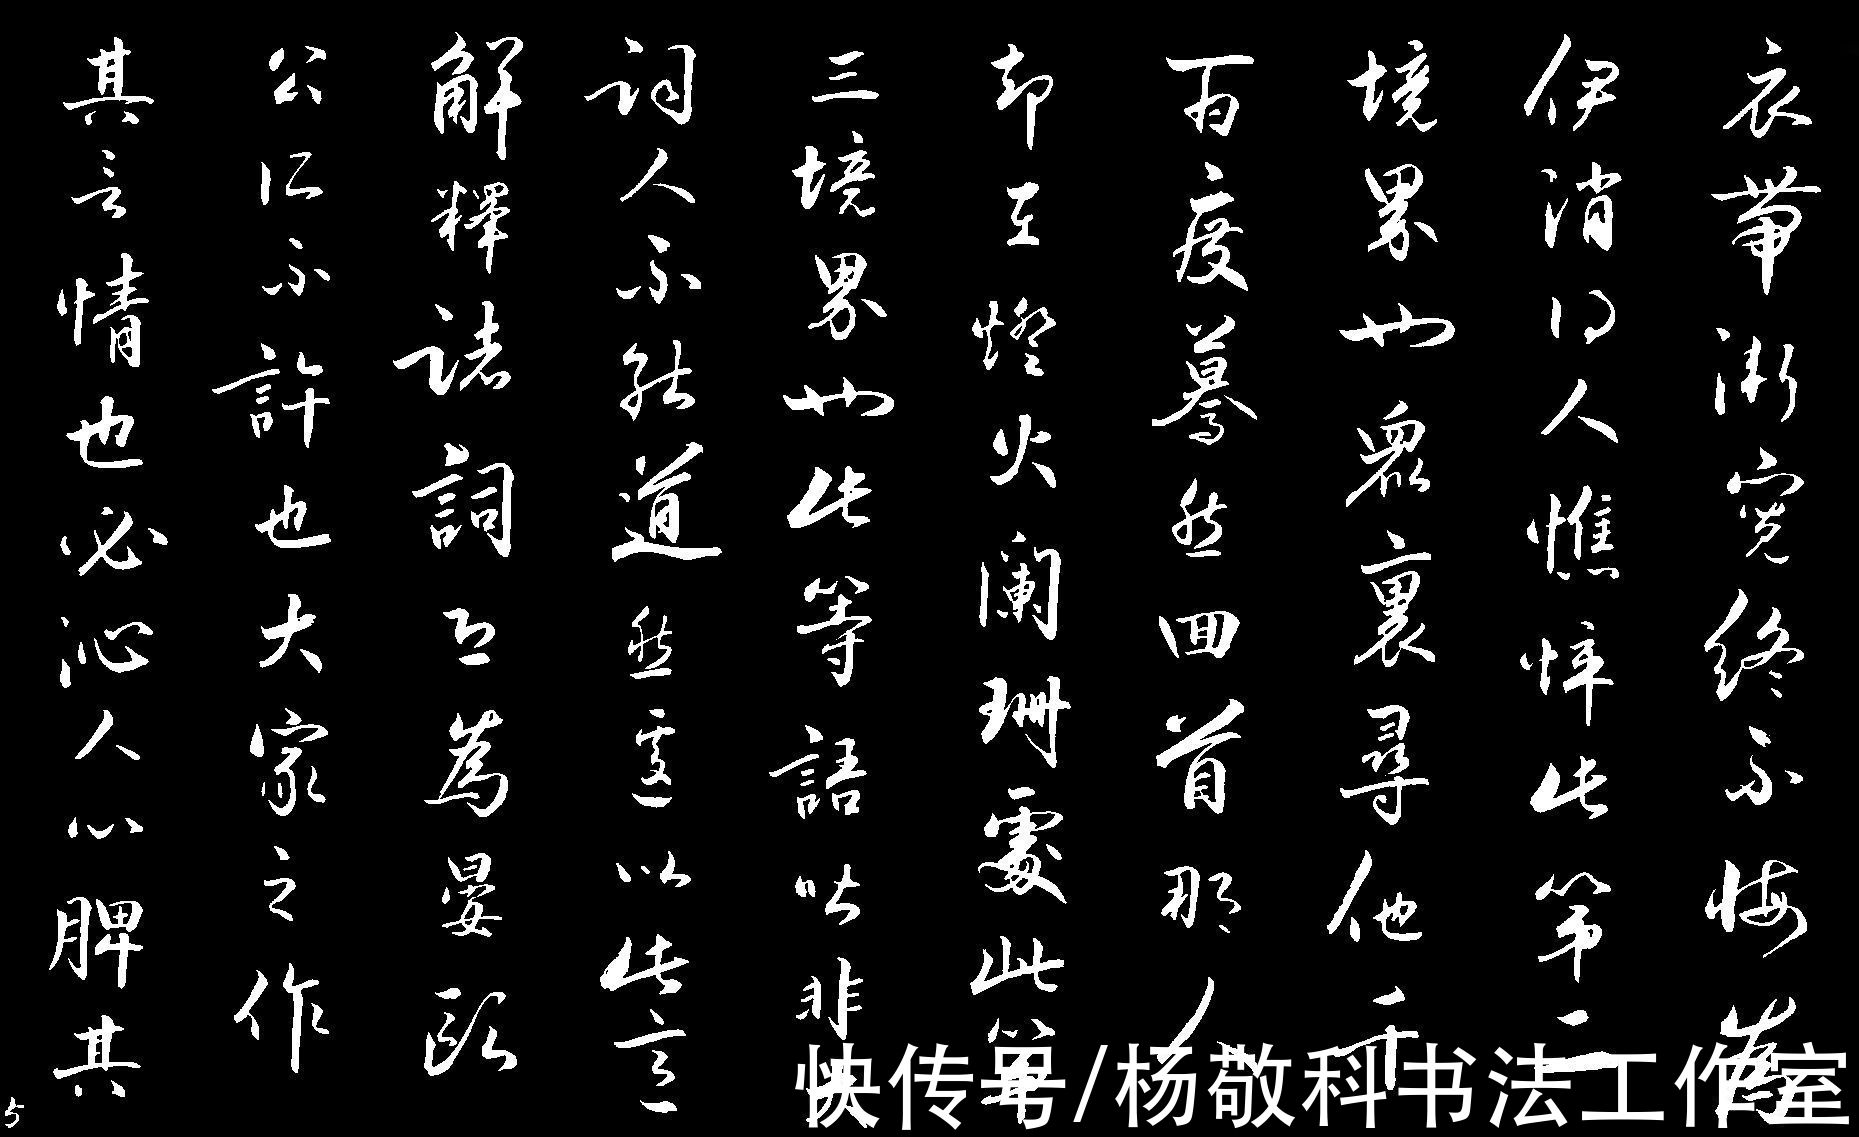 衣帶漸寬終不悔為
伊消得人憔悴此第二
境界也眾裏尋他千
百度驀然回首那人
却在燈火闌珊處此第
三境界也此等語皆非大
詞人不能道然遽以此意
解釋諸詞恐為晏歐
公所不許也大家之作
其言情也必沁人心脾其
5
快传号/杨敬科书法工作室